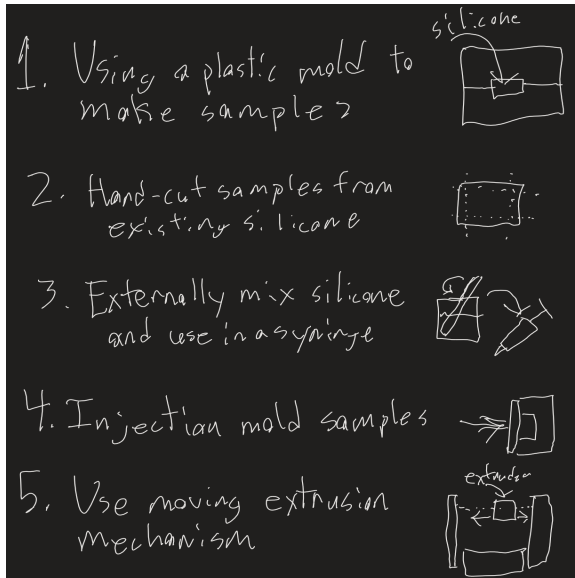 silicone
1. Using a plastic mold to
make samples
2. Hand-cut samples from
existing silicone
3. Externally mix silicone
and use in a syringe
4. Injection mold samples
extrusion
5. Use moving extrusion
mechanism